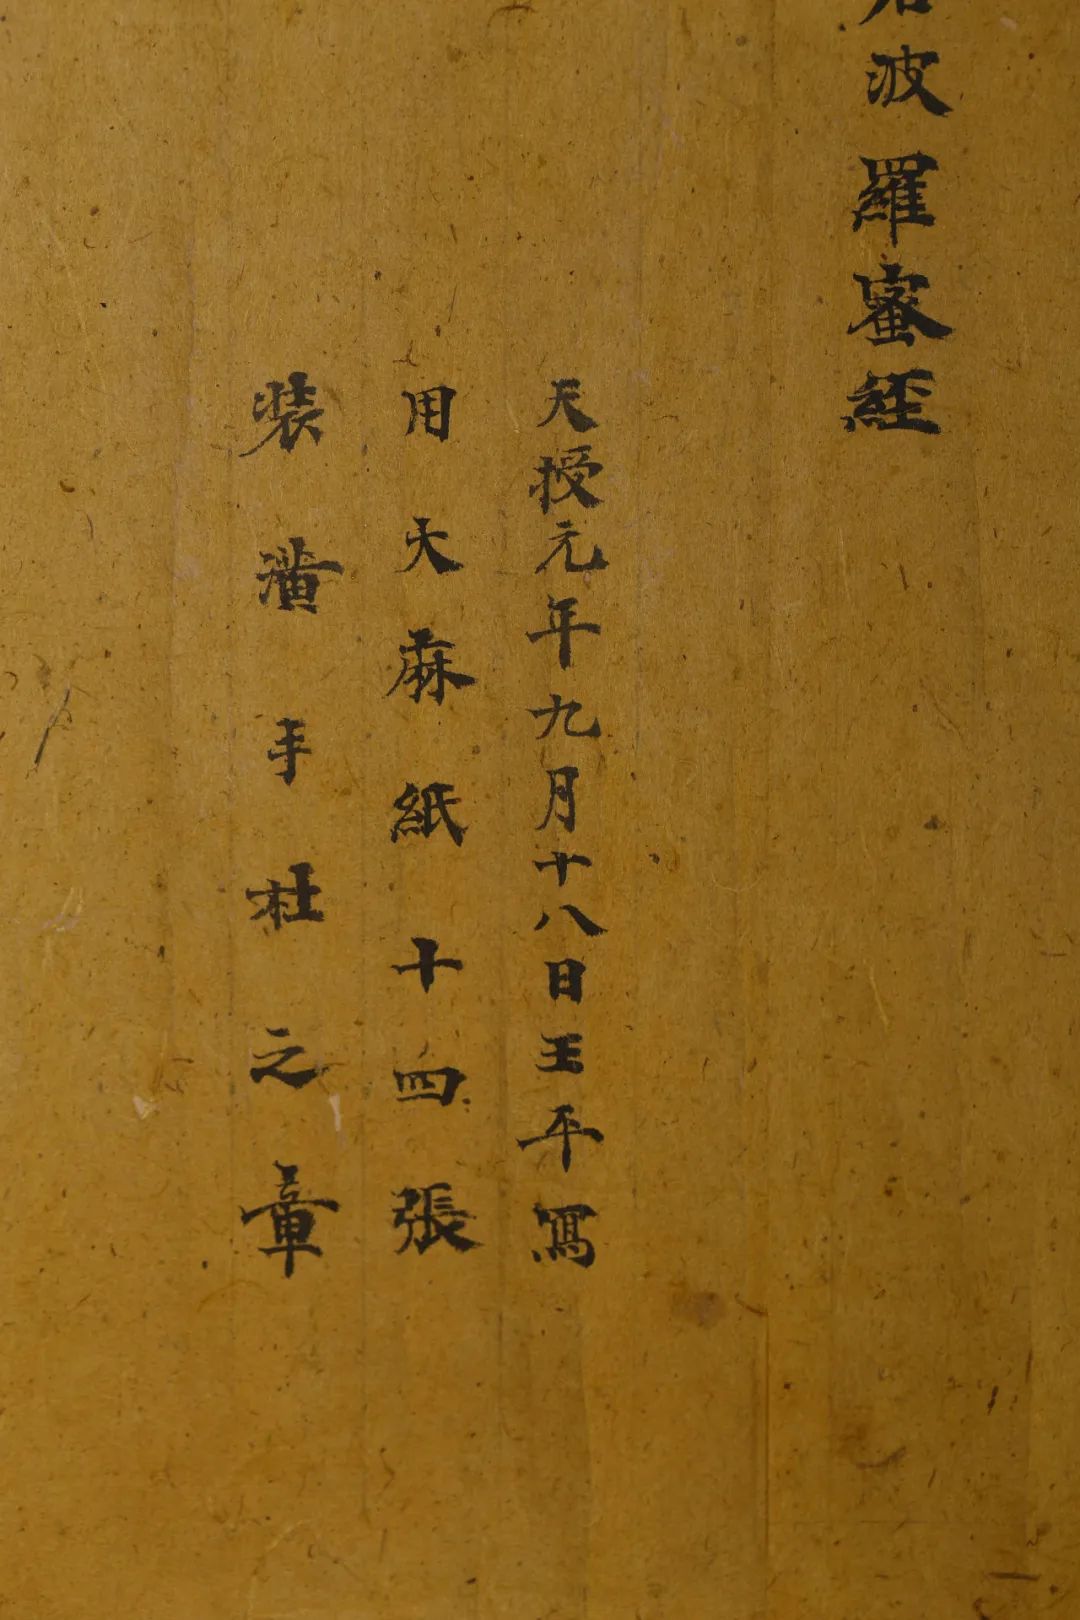 波羅蜜經
天授元年九月十八日王平寫
用大麻紙十四張
裝潢手杜之章